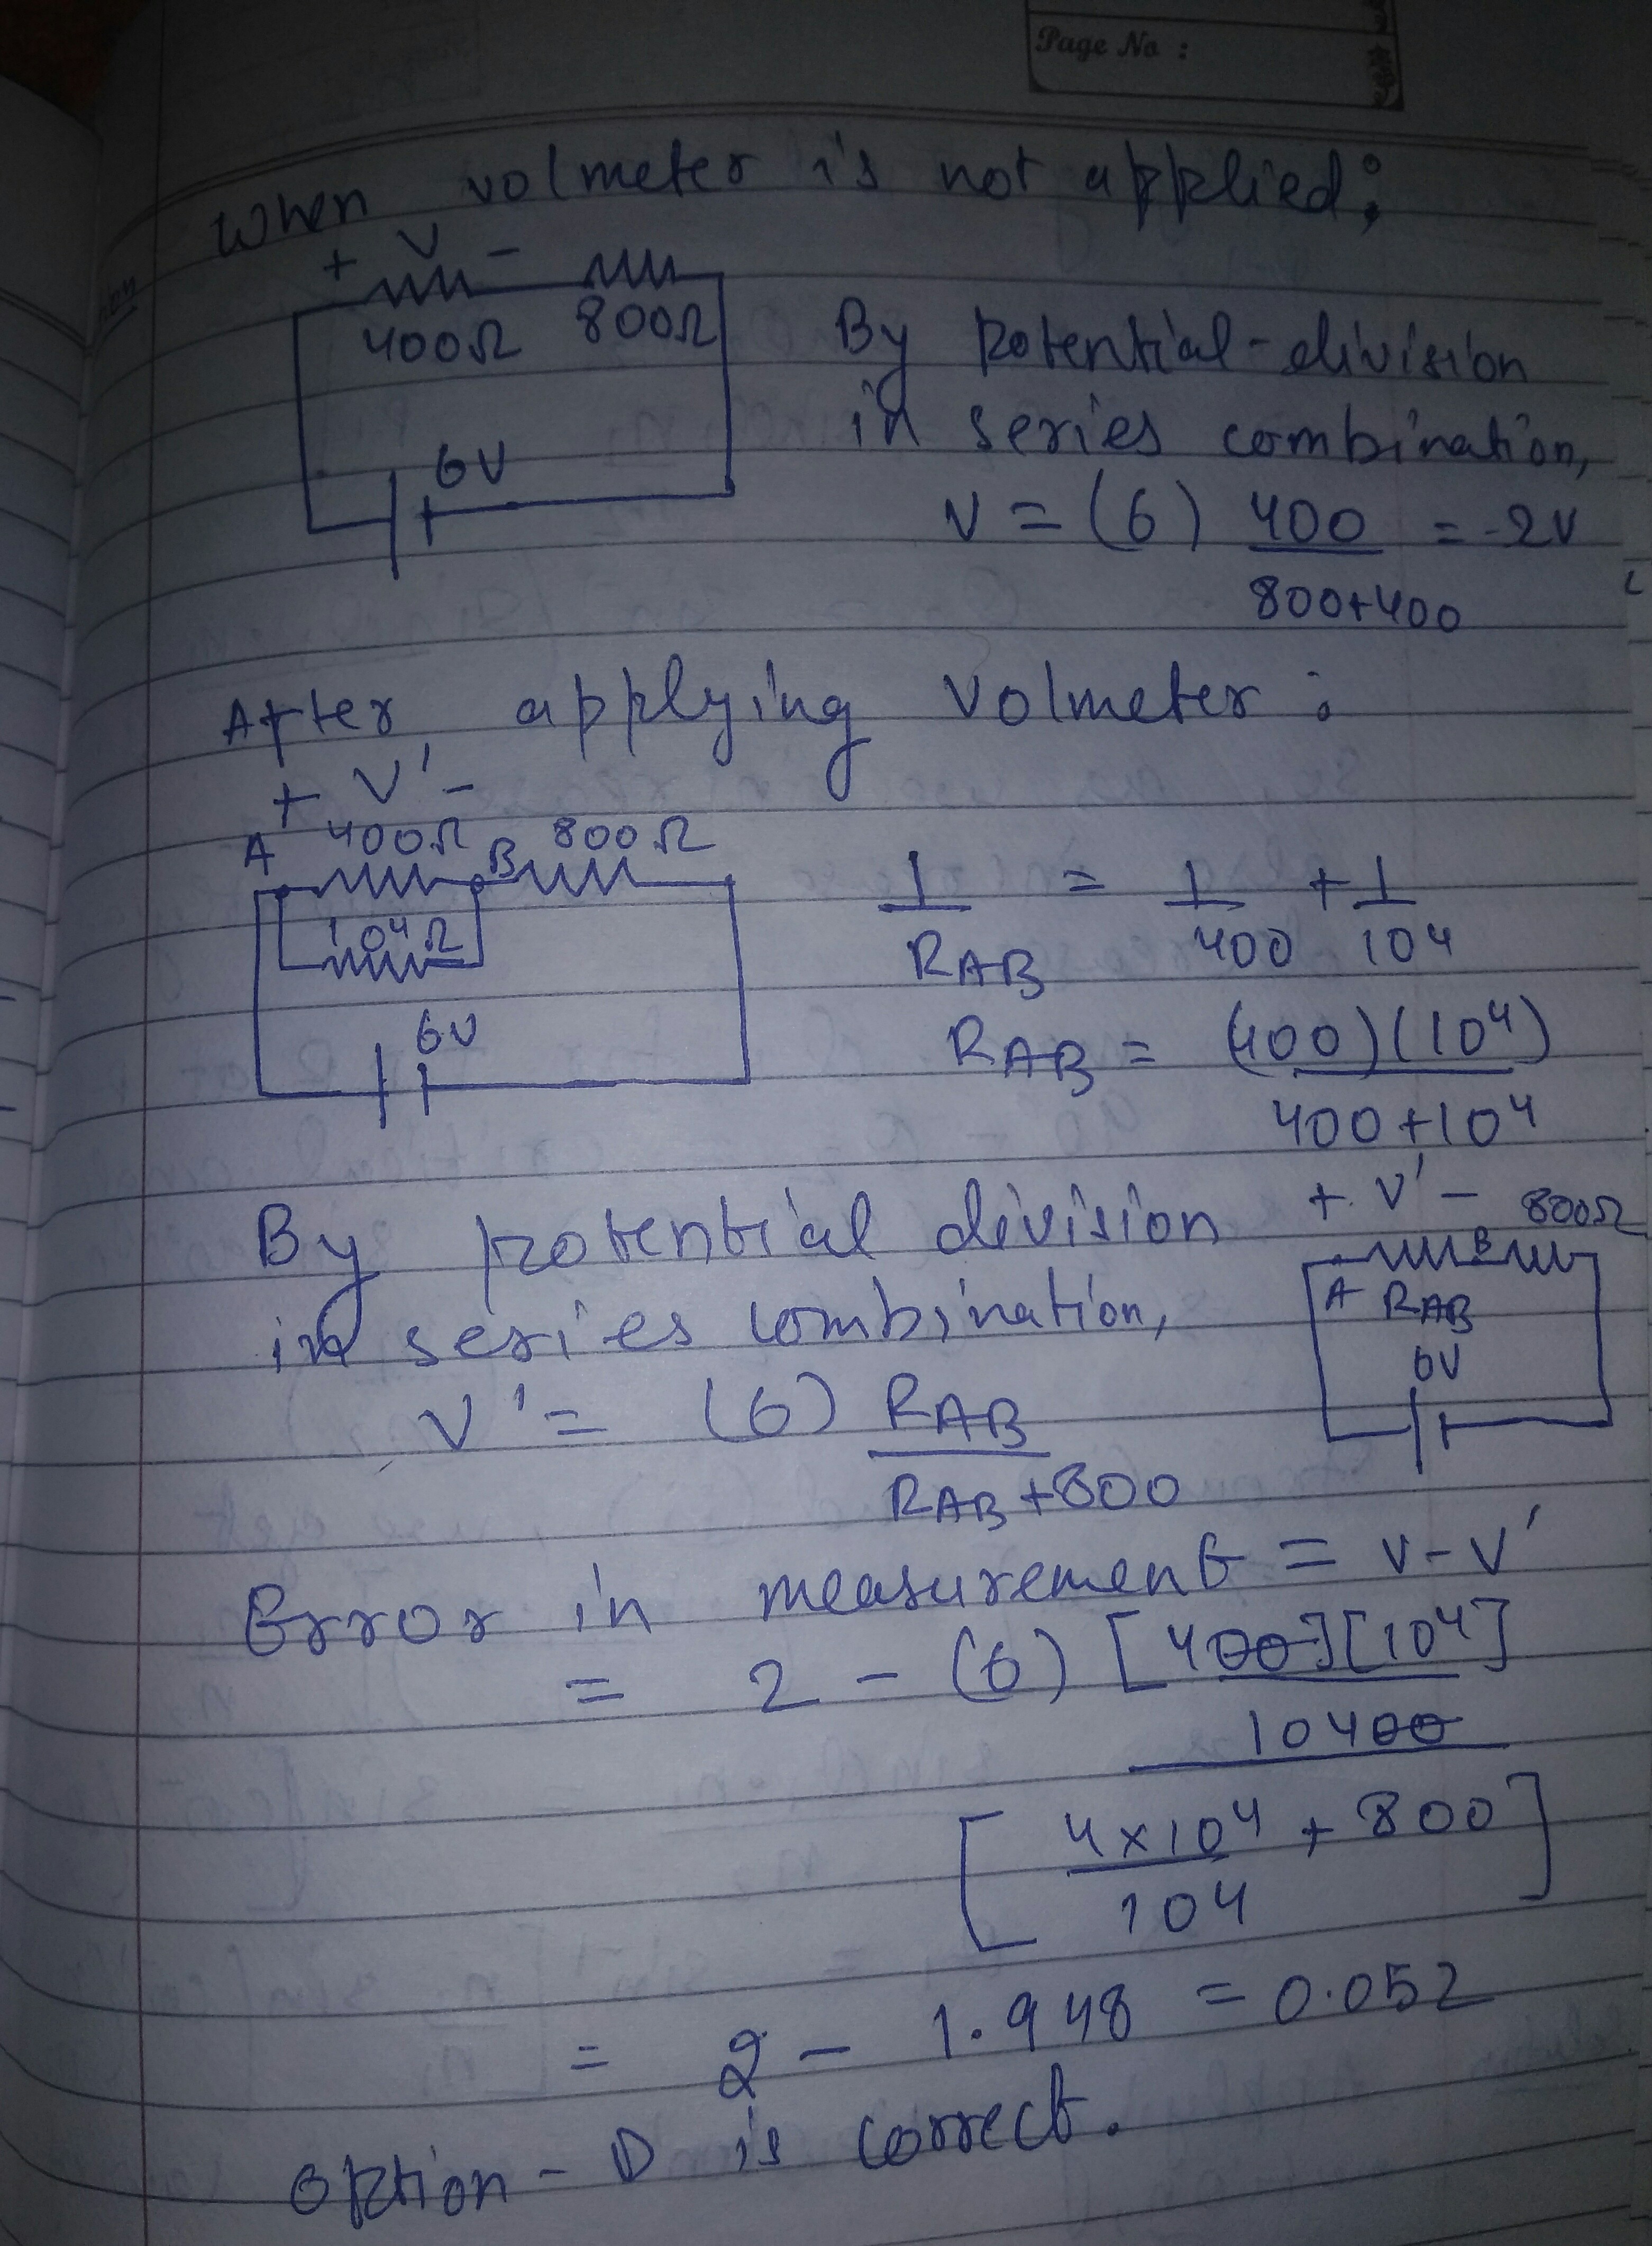 Page No :
When volmeter is not applied;
+ V -
400Ω 800Ω
6V
By potential-division
in series combination,
V = (6) 400 = 2V
800+400
After applying volmeter :
+ V' -
A 400Ω B 800Ω
10⁴Ω
6V
1 = 1 + 1
R_AB 400 10⁴
R_AB = (400)(10⁴)
400+10⁴
By potential division
in series combination,
+ V' - 800Ω
B
A R_AB
6V
V' = (6) R_AB
R_AB+800
Error in measurement = V-V'
= 2 - (6) [400][10⁴]
10400
[4×10⁴ + 800]
104
= 2 - 1.948 = 0.052
Option - D is correct.